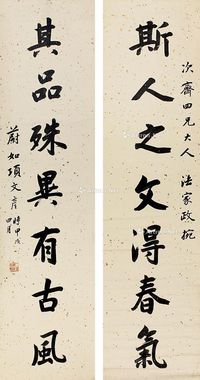 次齊四兄大人 法家政捥
斯人之文得春氣
其品殊異有古風
時甲戌四月
蔚如項文彥